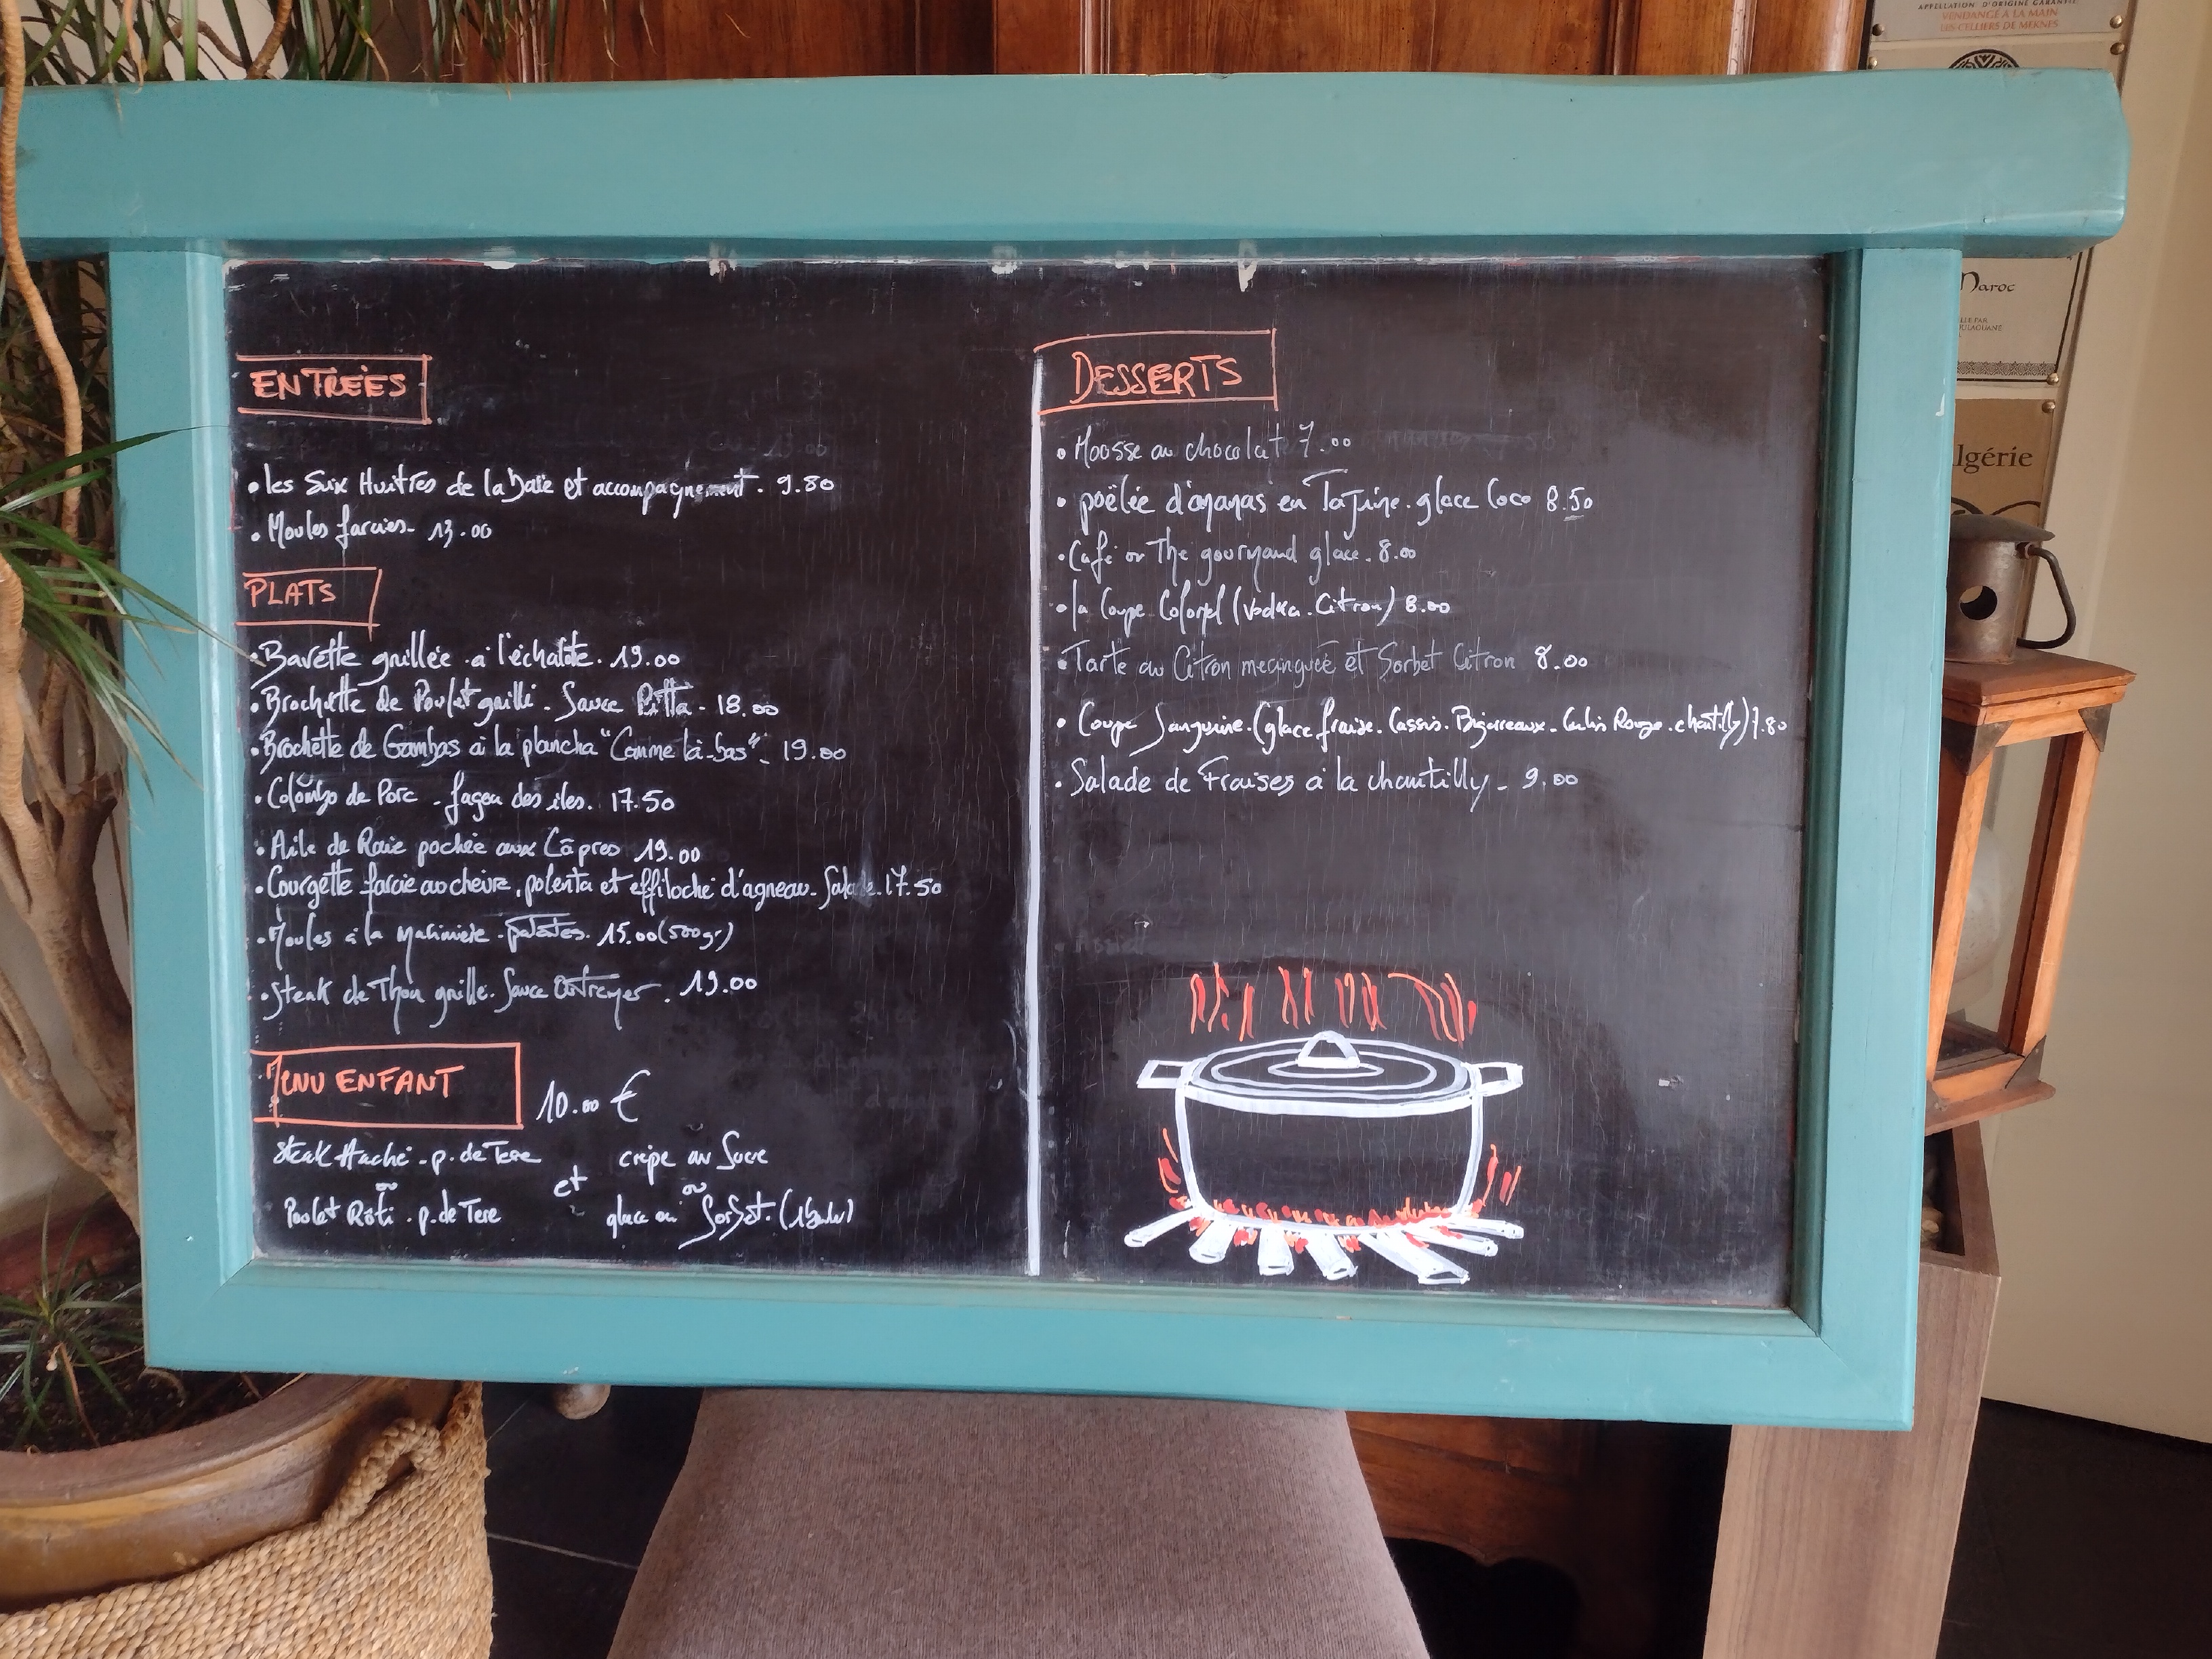 ENTRÉES
• les Six Huîtres de la baie et accompagnement. 9.80
• Moules farcies - 13.00
PLATS
• Bavette grillée à l'échalote. 19.00
• Brochette de Poulet grillé. Sauce Pitta - 18.00
• Brochette de Gambas à la plancha "Comme là-bas" - 19.00
• Colombo de Porc - façon des iles. 17.50
• Aile de Raie pochée aux Câpres 19.00
• Courgette farcie au chèvre, polenta et effiloché d'agneau - Salade. 17.50
• Moules à la marinière - patates. 15.00 (500gr)
• Steak de Thon grillé. Sauce Outremer. 19.00
MENU ENFANT 10.00 €
Steak Haché - p. de Terre
ou
Poulet Rôti - p. de Terre
et
crêpe au Sucre
ou
glace ou Sorbet. (1 boule)
DESSERTS
• Mousse au chocolat 7.00
• poëlée d'ananas en Tajine. glace Coco 8.50
• Café ou Thé gourmand glace. 8.00
• la Coupe Colonel (vodka. Citron) 8.00
• Tarte au Citron meringuée et Sorbet Citron 8.00
• Coupe Sanguine. (glace fraise. Cassis. Bigarreaux. Coulis Rouge. chantilly) 7.80
• Salade de Fraises à la chantilly - 9.00
APPELLATION D'ORIGINE GARANTIE
VENDANGÉ A LA MAIN
LES CELLIERS DE MEKNES
Maroc
lgérie